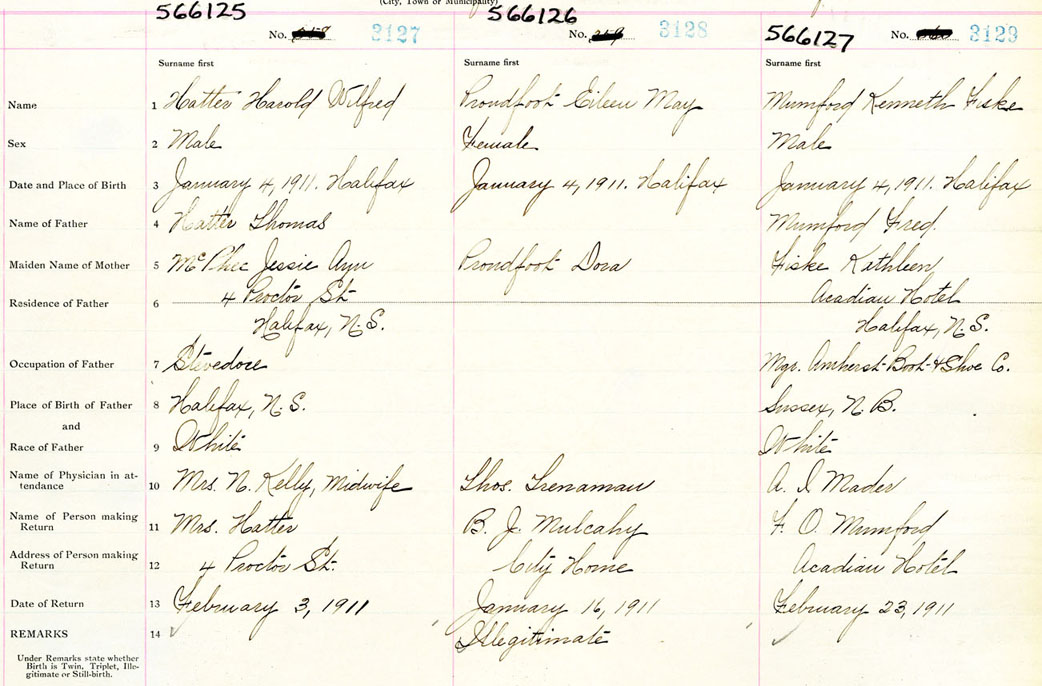 (City, Town or Municipality)
566125 566126
No. 3127 No. 3128 566127 No. 3129
Surname first Surname first Surname first
Name 1 Hatter Harold Wilfred Proudfoot Eileen May Mumford Kenneth Fiske
Sex 2 Male Female Male
Date and Place of Birth 3 January 4, 1911. Halifax January 4, 1911. Halifax January 4, 1911. Halifax
Name of Father 4 Hatter Thomas Mumford Fred.
Maiden Name of Mother 5 McPhee Jessie Ann Proudfoot Dora Fiske Kathleen
Residence of Father 6 4 Proctor St- Acadian Hotel
Halifax, N.S. Halifax, N.S.
Occupation of Father 7 Stevedore Mgr. Amherst Boot & Shoe Co.
Place of Birth of Father 8 Halifax, N.S. Sussex, N.B.
and
Race of Father 9 White White
Name of Physician in at-
tendance 10 Mrs. N. Kelly, Midwife Thos. Trenaman A. I. Mader
Name of Person making
Return 11 Mrs. Hatter B. J. Mulcahy F. O. Mumford
Address of Person making
Return 12 4 Proctor St. City Home Acadian Hotel
Date of Return 13 February 3, 1911 January 16, 1911 February 23, 1911
REMARKS 14 Illegitimate
Under Remarks state whether
Birth is Twin, Triplet, Ille-
gitimate or Still-birth.